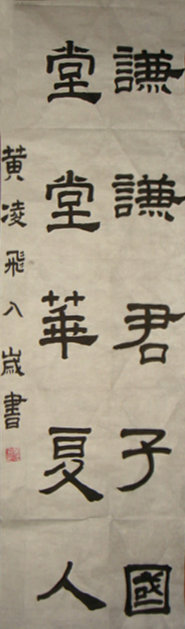 謙謙君子國
堂堂華夏人
黃凌飛八歲書